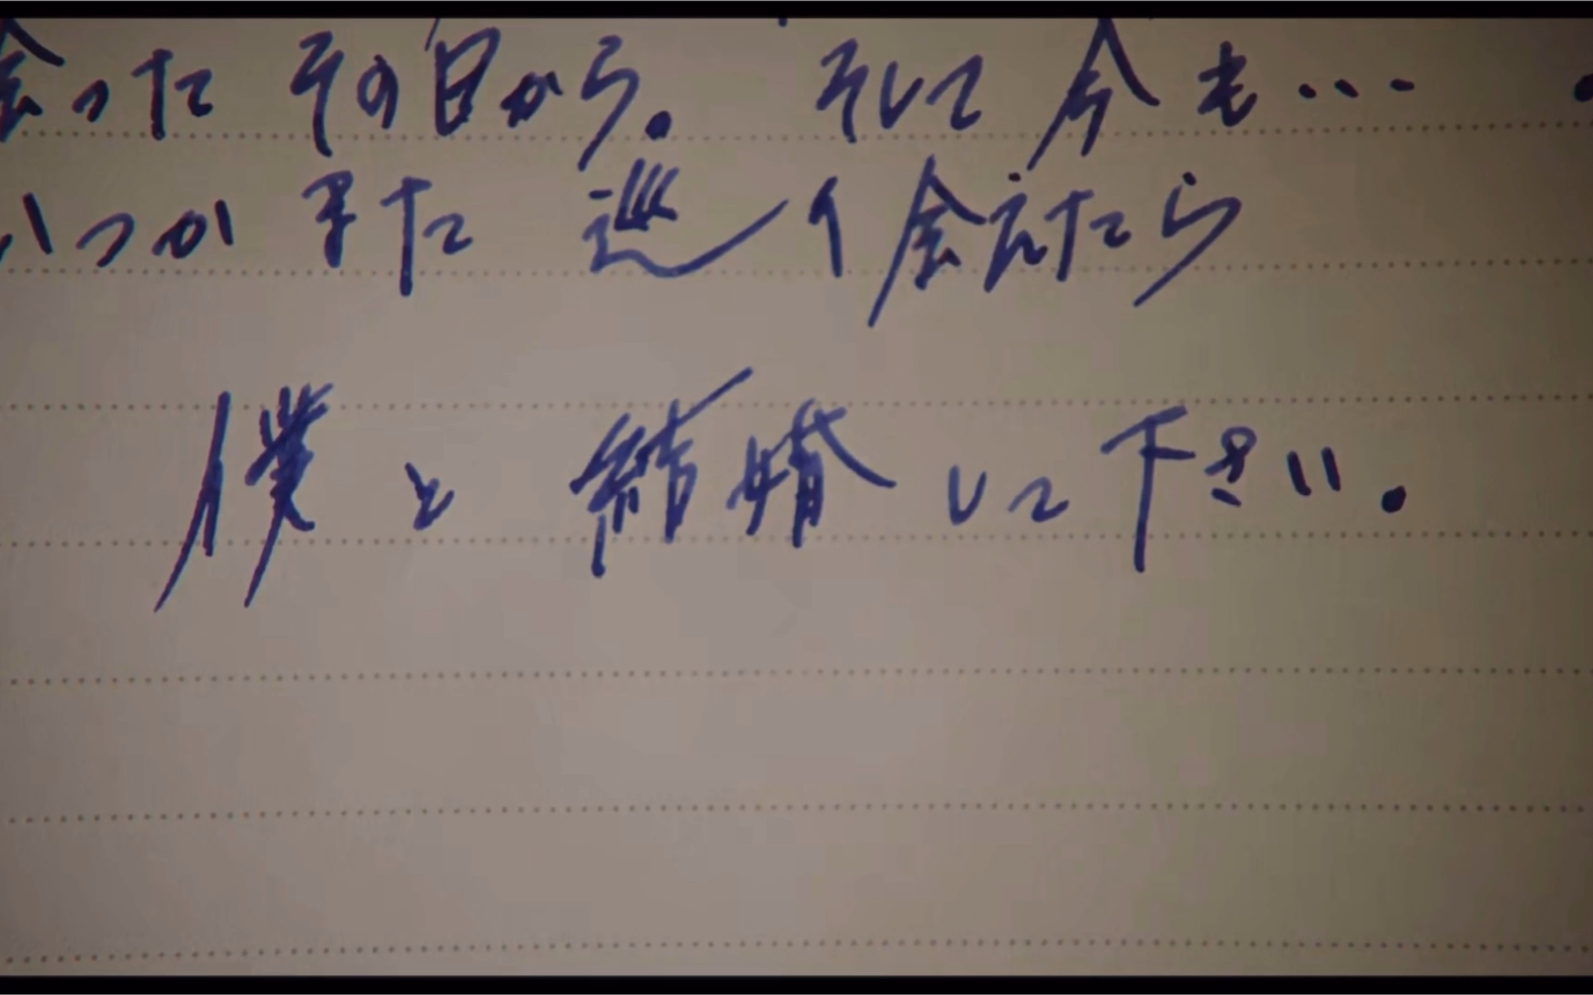 会った その日から。 そして 今も…
いつか また 巡り会えたら
僕と 結婚して下さい。